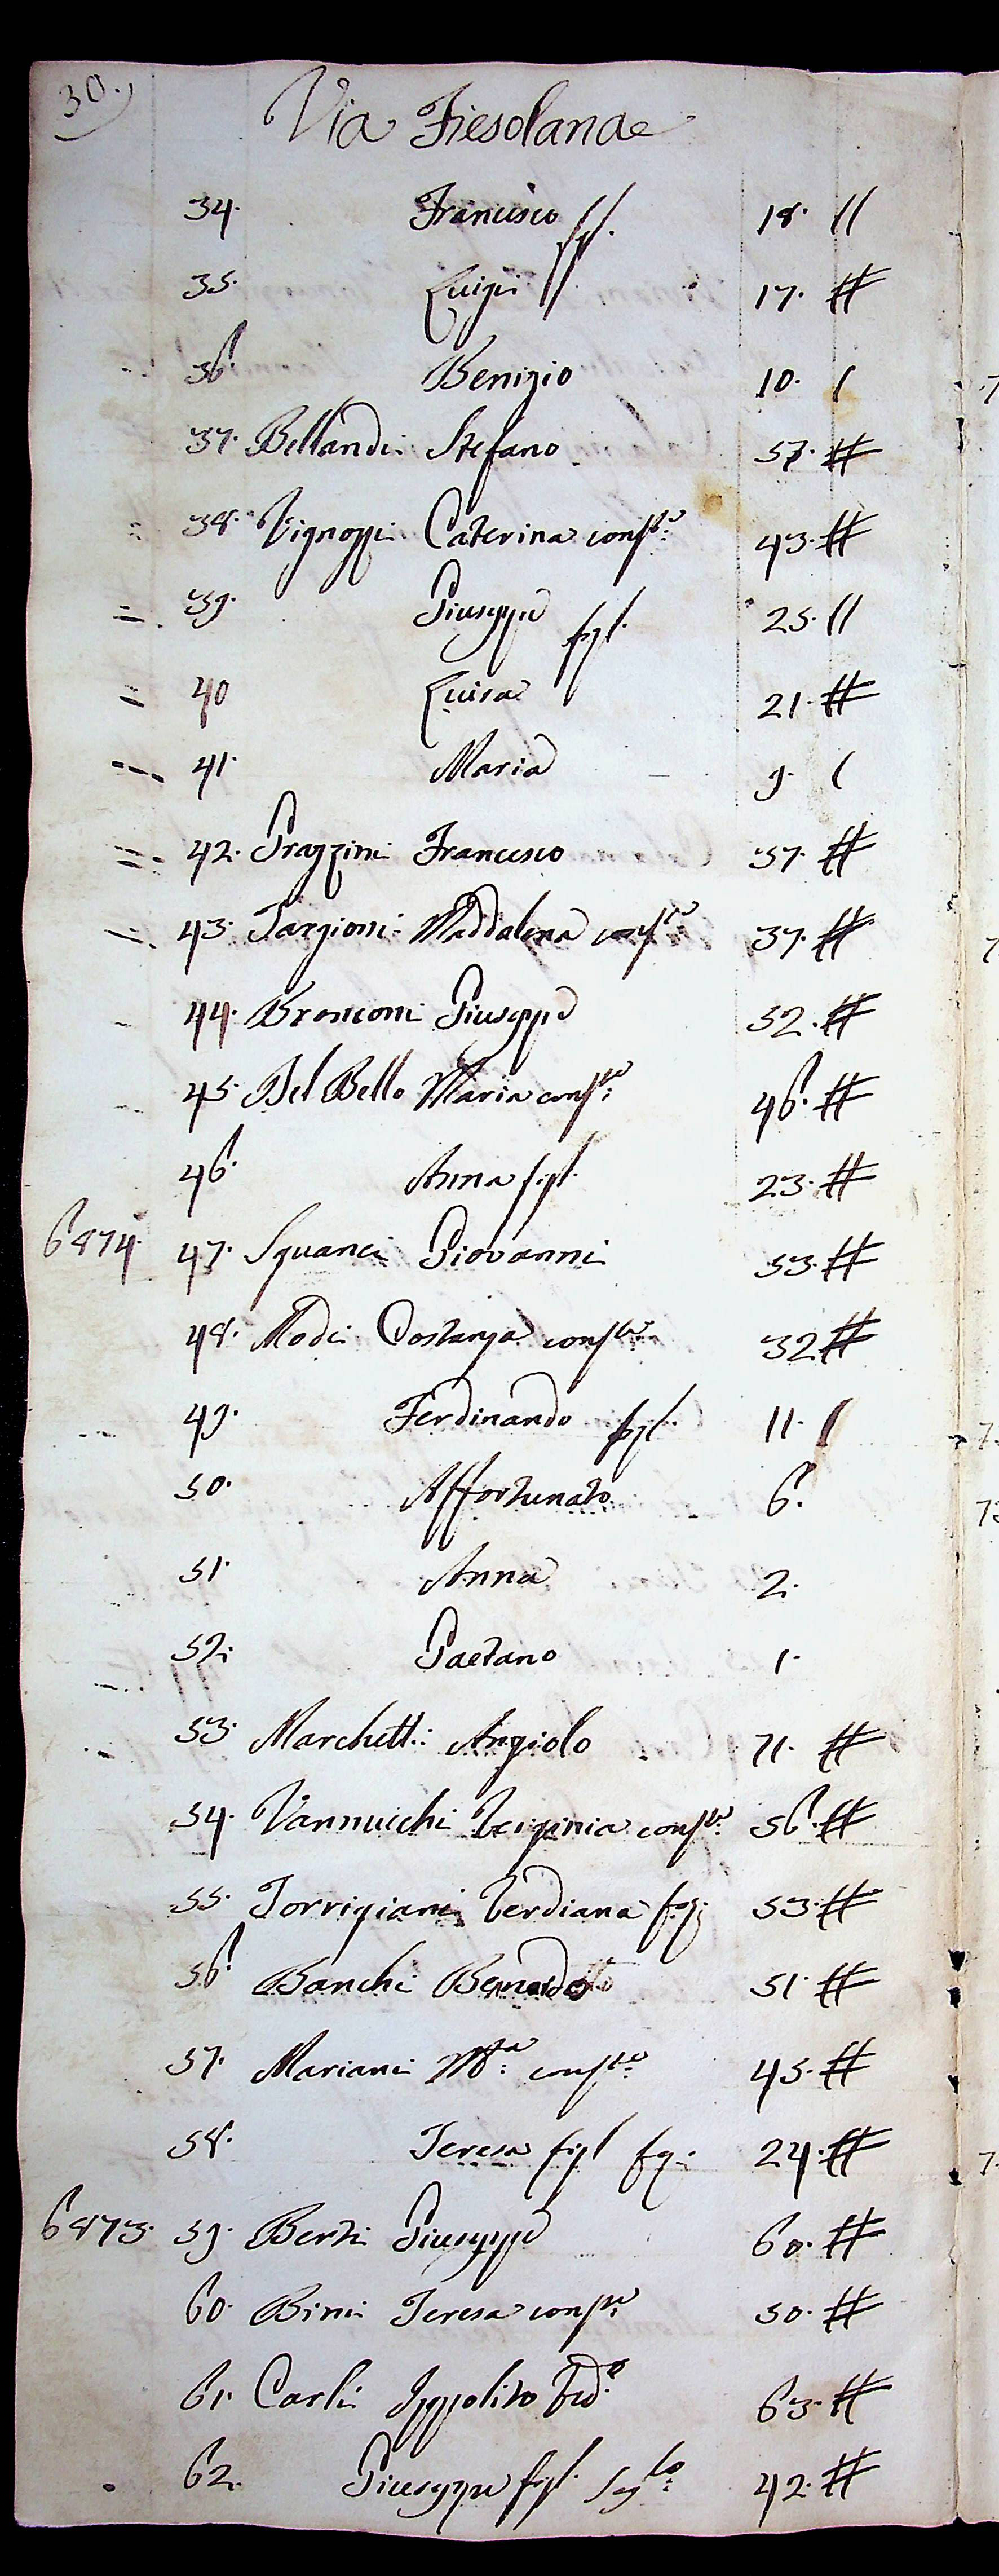 30.
Via Fiesolana
34. Francesco figl. 18. //
35. Luigi 17. #
36. Benizio 10. /
37. Bellandi Stefano 57. #
38. Vignozzi Caterina conste: 43. #
39. Giuseppe figl. 25. //
40 Luisa 21. #
41. Maria 9. /
42. Grazzini Francesco 37. #
43. Targioni Maddalena conste: 37. #
44. Bronconi Giuseppe 52. #
45. Del Bello Maria conste: 46. #
46. Anna figl. 23. #
6874. 47. Squanci Giovanni 53. #
48. Modi Costanza conste: 32 #
49. Ferdinando figl. 11. /
50. Affortunato 6.
51. Anna 2.
52. Gaetano 1.
53. Marchetti Angiolo 71. #
54. Vannucchi Verginia conste: 56. #
55. Torrigiani Verdiana 53. #
56. Banchi 51. #
57. Mariani Ma: conste: 45. #
58. Teresa figl 24. #
6873. 59. Berti Giuseppe 60. #
60. Bini Teresa conste: 50. #
61. Carli Ippolito Vedo: 63. #
62. Giuseppe figl. 42. #